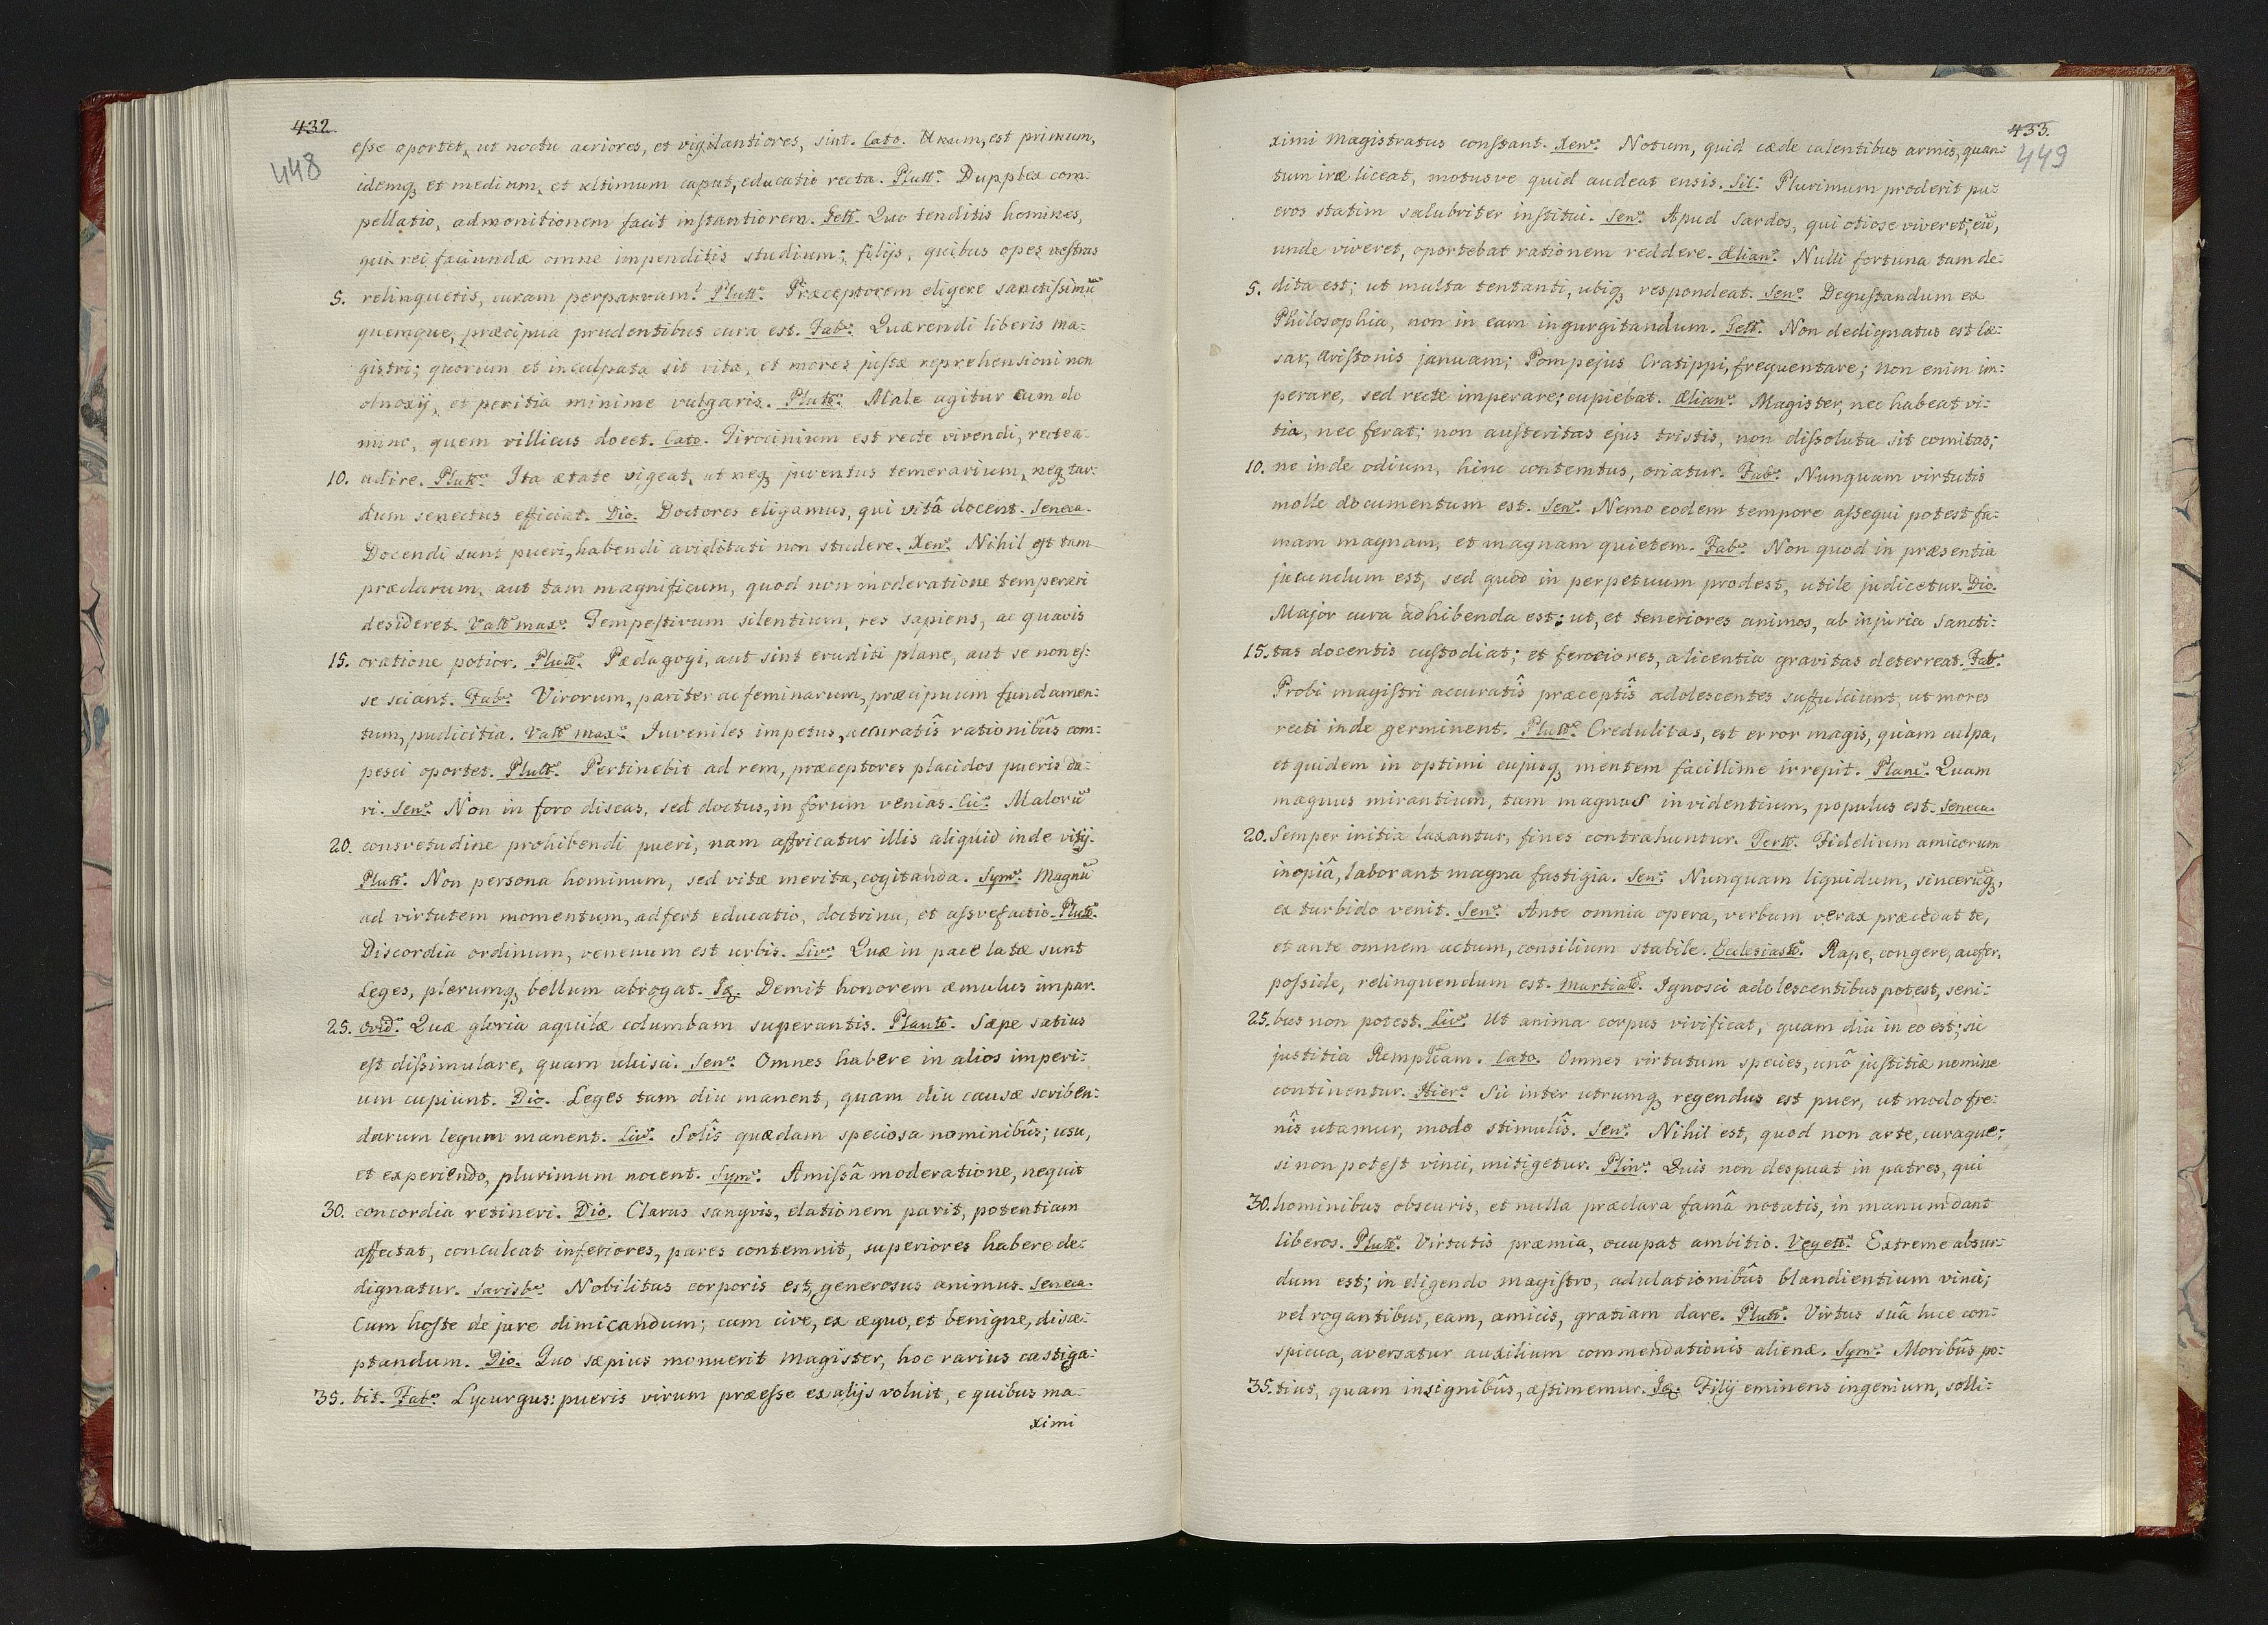 432.
448
esse oportet, ut noctu acriores, et vigilantiores, sint. Cato. Unum, est primum,
idemq, et medium, et ultimum caput, educatio recta. Plutt. Dupplex com:
pellatio, admonitionem facit instantiorem. Gell. Quo tenditis homines,
qui rei faciundæ omne impenditis studium; filijs, quibus opes vestras
5. relinquetis, curam perparvam! Plutt. Præceptorem eligere sanctissimũ
quemque, præcipua prudentibus cura est. Fab. Quærendi liberis ma:
gistri; quorum et inculpata sit vita, et mores justæ reprehensioni non
obnoxij, et peritia minime vulgaris. Plutt. Male agitur cum do
mino, quem villicus docet. Cato. Tirocinium est recte vivendi, rectea:
10. udire. Plutt. Ita ætate vigeat, ut neq, juventus temerarium, neq tar:
dum senectus efficiat. Dio. Doctores eligamus, qui vitâ docent. Seneca.
Docendi sunt pueri, habendi aviditati non studere. Xen. Nihil est tam
præclarum, aut tam magnificum, quod non moderatione temperari
desideret. Vall max. Tempestivum silentium, res sapiens, ac quavis
15. oratione potior. Plutt. Pædagogi, aut sint eruditi plane, aut se non es:
se sciant. Fab. Virorum, pariter ac feminarum, præcipuum fundamen:
tum, pudicitia. Vall max. Iuveniles impetus, accuratîs rationibûs com:
pesci oportet. Plutt. Pertinebit ad rem, præceptores placidos pueris da:
ri. Sen. Non in foro discas, sed doctus, in forum venias. Cic. Malorũ
20. consvetudine prohibendi pueri, nam affricatur illis aliquid inde vitij.
Plutt. Non persona hominum, sed vitæ merita, cogitanda. Sym. Magnũ
ad virtutem momentum, adfert educatio, doctrina, et assvefactio. Plutt.
Discordia ordinum, venenum est urbis. Liv. Quæ in pace latæ sunt
Leges, plerumq, bellum abrogat. Iq. Demit honorem æmulus impar.
25. Ovid. Quæ gloria aquilæ columbam superantis. Plautt. Sæpe satius
est dissimulare, quam ulcisci. Sen. Omnes habere in alios imperi:
um cupiunt. Dio. Leges tam diu manent, quam diu causæ scriben:
darum legum manent. Liv. Solîs quædam speciosa nominibûs; usu,
et experiendo, plurimum nocent. Sym. Amissâ moderatione, nequit
30. concordia retineri. Dio. Clarus sangvis, elationem parit, potentiam
affectat, conculcat inferiores, pares contemnit, superiores habere de:
dignatur. Sarisb. Nobilitas corporis est, generosus animus. Seneca.
Cum hoste de jure dimicandum; cum cive, ex æquo, et benigne, disce:
ptandum. Dio. Quo sæpius monuerit Magister, hoc rarius castiga:
35. bit. Fab. Lycurgus: pueris virum præesse ex alijs voluit, e quibus ma:
ximi
433.
449
ximi Magistratus constant. Xen. Notum, quid cæde calentibus armis, quan:
tum iræ liceat, motusve quid audeat ensis. Sil. Plurimum proderit pu:
eros statim salubriter institui. Sen. Apud Sardos, qui otiose viveret; eũ,
unde viveret, oportebat rationem reddere. Ælian. Nulli fortuna tam de:
5. dita est; ut multa tentanti, ubiq, respondeat. Sen. Degustandum ex
Philosophia, non in eam ingurgitandum. Gell. Non dedignatus est Cæ:
sar, Aristonis januam; Pompejus Cratippi, frequentare; non enim im:
perare, sed recte imperare; cupiebat. Ælian. Magister, nec habeat vi:
tia, nec ferat; non austeritas ejus tristis, non dissoluta sit comitas;
10. ne inde odium, hinc contemtus, oriatur. Fab. Nunquam virtutis
molle documentum est. Sen. Nemo eodem tempore assequi potest fa:
mam magnam, et magnam quietem. Fab. Non quod in præsentia
jucundum est, sed quod in perpetuum prodest, utile judicetur. Dio.
Major cura adhibenda est; ut, et teneriores animos, ab injuria sancti:
15. tas docentis custodiat; et ferociores, a licentia gravitas deterreat. Fab.
Probi magistri accuratîs præceptîs adolescentes suffulciunt, ut mores
recti inde germinent. Plutt. Credulitas, est error magis, quàm culpa,
et quidem in optimi cujusq, mentem facillime irrepit. Planc. Quam
magnus mirantium, tam magnus invidentium, populus est. Seneca.
20. Semper initia laxantur, fines contrahuntur. Tertt. Fidelium amicorum
inopiâ, laborant magna fastigia. Sen. Nunquam liquidum, sincerũq,
ex turbido venit. Sen. Ante omnia opera, verbum verax præcedat te,
et ante omnem actum, consilium stabile. Ecclesiastt. Rape, congere, aufer,
posside, relinquendum est. Martiall. Ignosci adolescentibus potest, seni:
25. bus non potest. Liv. Ut anima corpus vivificat, quam diu in eo est; sic
justitia Rempłcam. Cato. Omnes virtutum species, unô justitiæ nomine
continentur. Hier. Sic inter utrumq, regendus est puer, ut modo fre:
nîs utamur, modo stimulîs. Sen. Nihil est, quod non arte, curaque;
si non potest vinci, mitigetur. Plin. Quis non despuat in patres, qui
30. hominibus obscuris, et nulla præclara famâ notatis, in manum dant
liberos. Plutt. Virtutis præmia, occupat ambitio. Vegett. Extreme absur:
dum est; in eligendo magistro, adulationibûs blandientium vinci;
vel rogantibus, eam, amicis, gratiam dare. Plutt. Virtus suâ luce con:
spicua, aversatur auxilium commendationis alienæ. Sym. Moribûs po:
35. tius, quam insignibûs, æstimemur. Iq. Filij eminens ingenium, solli: